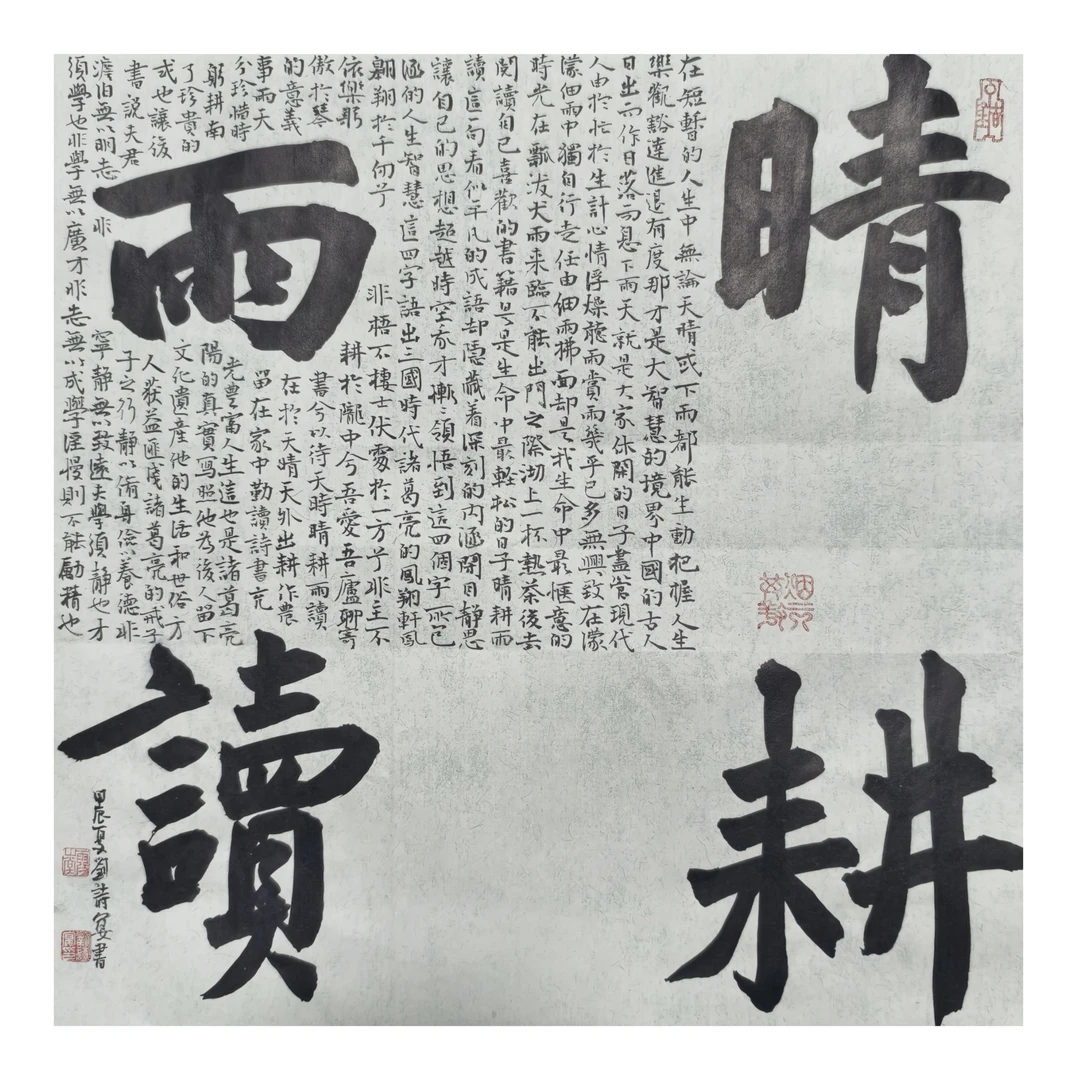 晴
耕
在短暫的人生中無論天晴或下雨都能生動把握人生
樂觀豁達進退有度那才是大智慧的境界中國的古人
日出而作日落而息下雨天就是大家休閒的日子盡管現代
人由於忙於生計心情浮燥聽雨賞雨幾乎已多無興致在濛
濛細雨中獨自行走任由細雨拂面卻是我生命中最愜意的
時光在瓢潑大雨来臨不能出門之際沏上一杯熱茶後去
閱讀自己喜歡的書籍是生命中最輕松的日子晴耕雨
讀這一句看似平凡的成語却隱藏着深刻的內涵閉目静思
讓自己的思想超越時空我才漸漸領悟到這四個字所包
涵的人生智慧這四字語出三國時代諸葛亮的鳳翔軒鳳
翱翔於千仞兮非梧不棲士伏處於一方兮非主不
依樂躬耕於隴中兮吾愛吾廬聊寄
傲於琴書兮以待天時晴耕雨讀
的意義在於天晴天外出耕作農
事雨天留在家中勤讀詩書充
分珍惜時光豐富人生這也是諸葛亮
躬耕南陽的真實寫照他為後人留下
了珍貴的文化遺産他的生活和世俗方
式也讓後人获益匪淺諸葛亮的戒子
書説夫君子之行静以脩身儉以養德非
澹泊無以明志非寧静無以致遠夫學須静也才
須學也非學無以廣才非志無以成學淫慢則不能勵精也
雨
讀
甲辰夏劉詩宴書